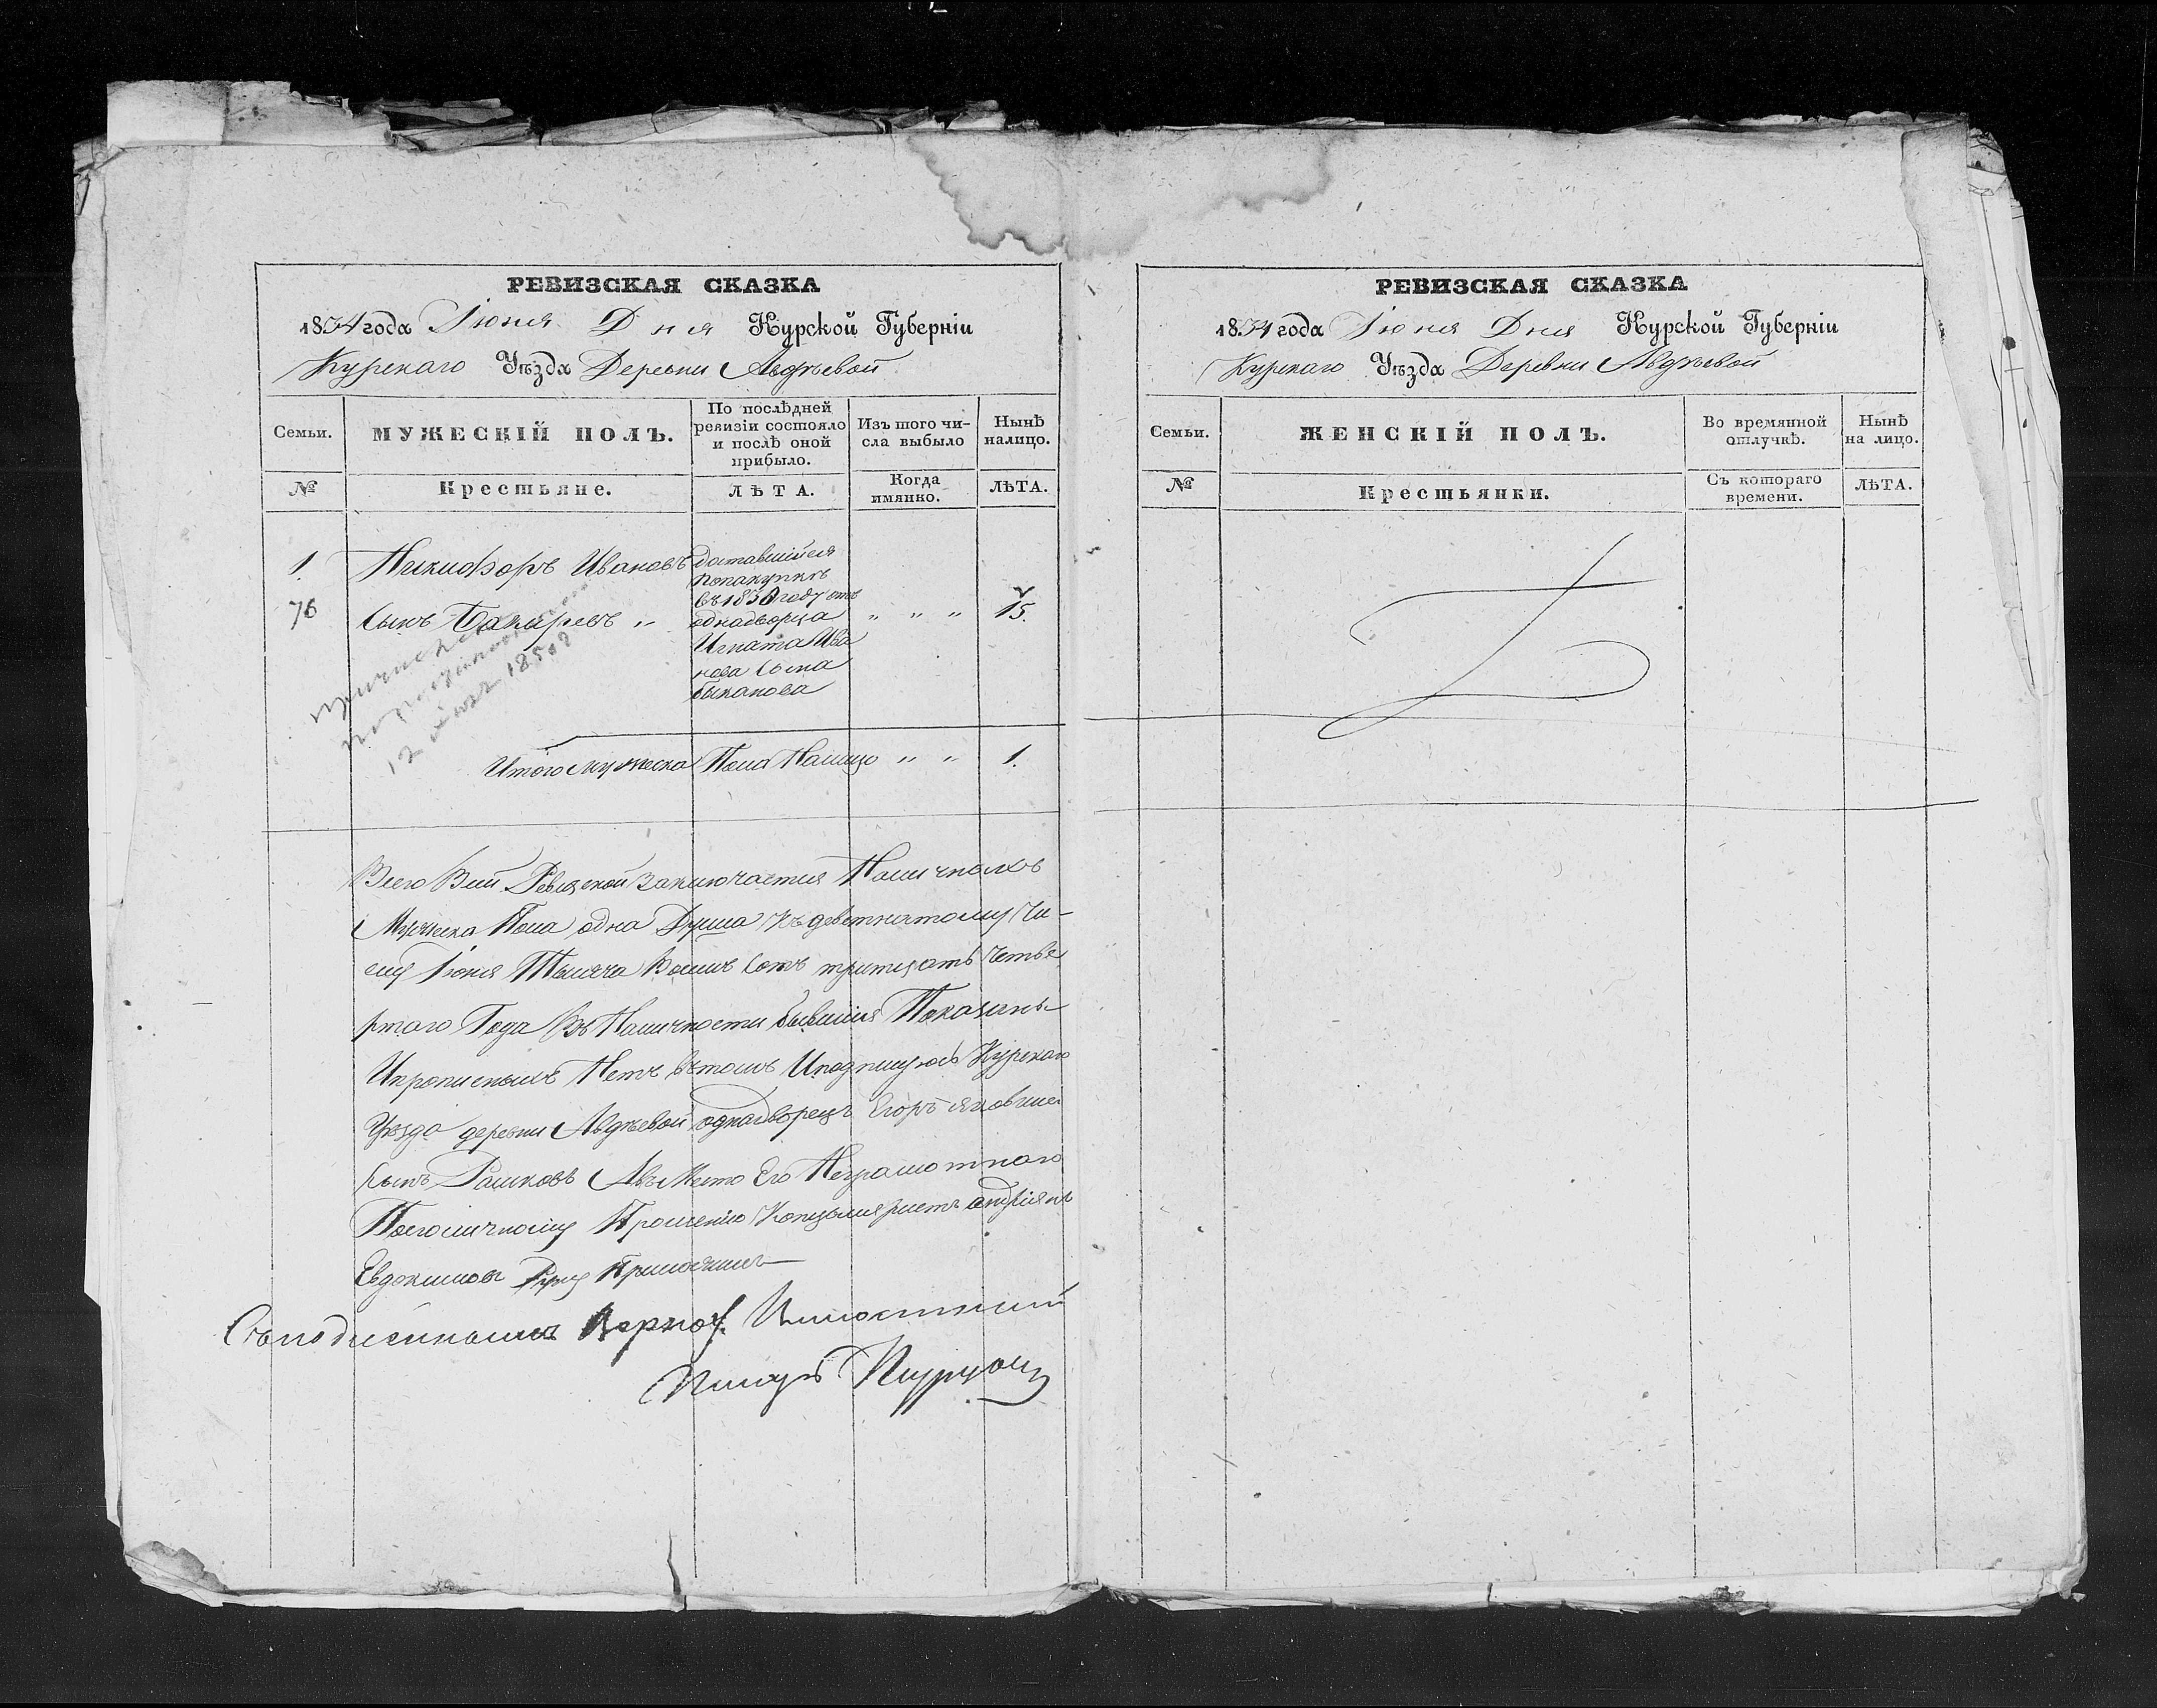 РЕВИЗСКАЯ СКАЗКА
1834 года Іюня Дня Курской Губерніи
Курскаго Уѣзда Деревни Авдѣевой
Семьи.
МУЖЕСКІЙ ПОЛЪ.
По послѣдней ревизіи состояло и послѣ оной прибыло.
Изъ того числа выбыло
Нынѣ налицо.
№
Крестьяне.
ЛѢТА.
Когда имянно.
ЛѢТА.
1.
76
Никифоръ Ивановъ
сынъ
доставшійся
попакупкѣ
въ 1830 году отъ
однадворца
Игната Ива
нова сына
быканова
" " "
15.
12 1850
Итого мужеска Пола Налицо " " 1.
Всего Всей Ревизской заключается Наличныхъ
Мужеска Пола одна Душа Къ деветнатому Чи-
слу Іюня Тысяча Восимъ Сотъ тритцать Четве
ртаго Года Въ Наличности бывшия Показаны
Ипрописныхъ Нетъ Вътомъ Иподпишуюсь Курскаго
Уѣзда деревни Авдѣевой однадворецъ Егоръ
сынъ Рашковъ Авместо Его Неграмотнаго
Поеголичному Прошению Концыляристъ андріянъ
Евдокимовъ Руку Приложилъ
Съподлиннымъ Верно
РЕВИЗСКАЯ СКАЗКА
1834 года Іюня Дня Курской Губерніи
Курскаго Уѣзда Деревни Авдѣевой
Семьи.
ЖЕНСКІЙ ПОЛЪ.
Во времянной отлучкѣ.
Нынѣ на лицо.
№
Крестьянки.
Съ котораго времени.
ЛѢТА.